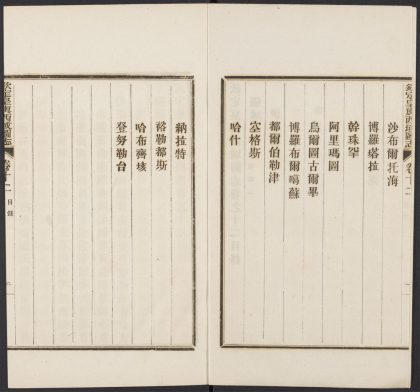 欽定皇輿西域圖志 卷十二
沙布爾托海
博羅塔拉
幹珠罕
阿里瑪圖
烏爾圖古爾畢
博羅布爾噶蘇
都爾伯勒津
空格斯
哈什
納拉特
裕勒都斯
哈布齊垓
登努勒台
欽定皇輿西域圖志 卷十二 目錄